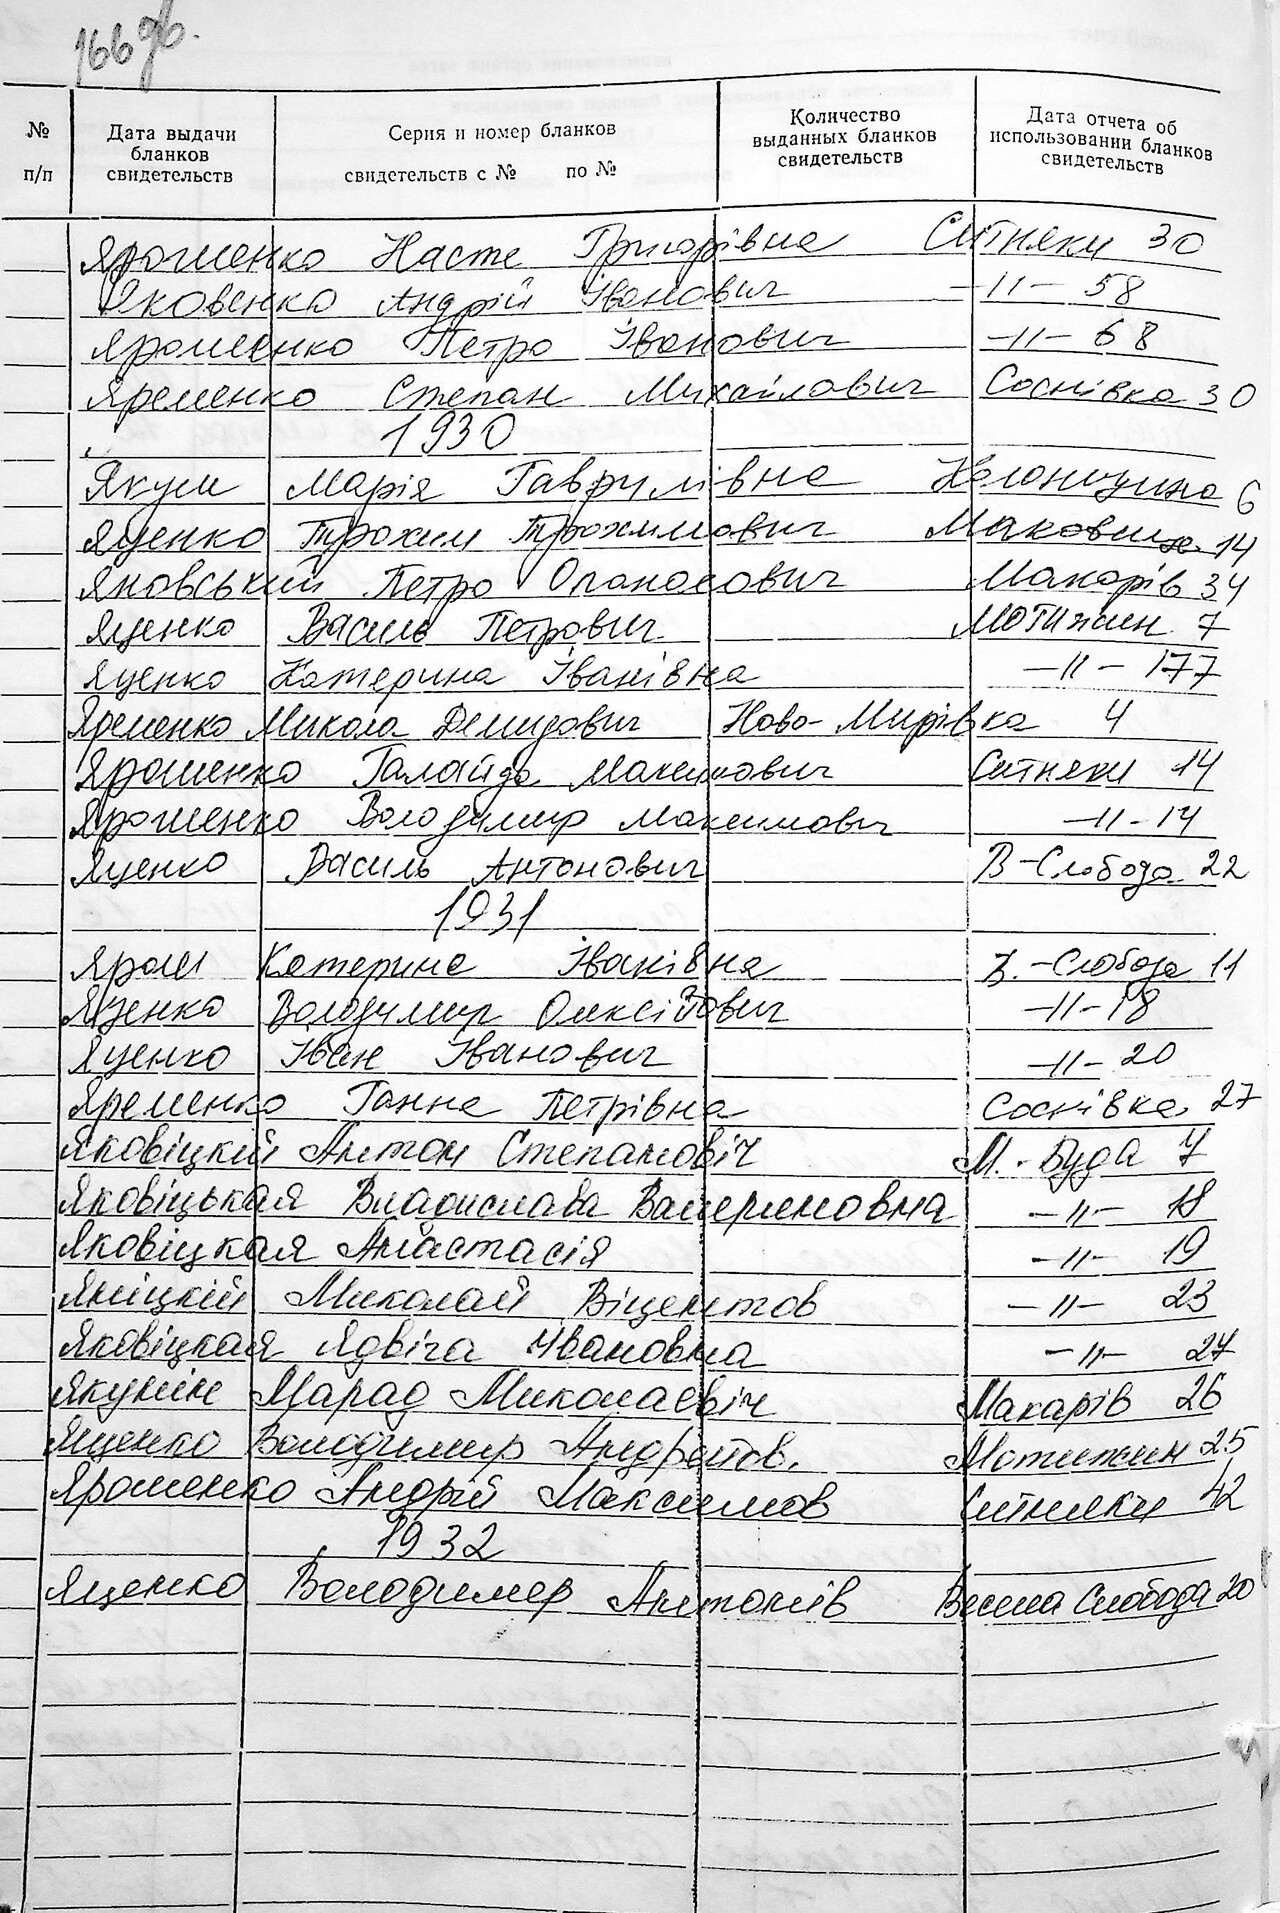 166 зв.
№ п/п
Дата выдачи бланков свидетельств
Серия и номер бланков свидетельств с № по №
Количество выданных бланков свидетельств
Дата отчета об использовании бланков свидетельств
Ярошенко Настя Григорівна Ситняки 30
Яковенко Андрій Іванович -11- 58
Ярошенко Петро Іванович -11- 68
Яременко Степан Михайлович Соснівка 30
1930
Якуш Марія Гаврилівна Колонщина 6
Яценко Трохим Трохимович Маковище 14
Яновський Петро Опанасович Макарів 34
Яценко Василь Петрович Мотижин 7
Яценко Катерина Іванівна -11- 177
Яременко Микола Демидович Ново-Мирівка 4
Ярошенко Галайда Максимович Ситняки 14
Ярошенко Володимир Максимович -11- 14
Яценко Василь Антонович В-Слобода 22
1931
Ярош Катерина Іванівна В.-Слобода 11
Яценко Володимир Олексійович -11- 18
Яценко Іван Іванович -11- 20
Яременко Ганна Петрівна Соснівка 27
Яковіцкий Антон Степановіч М.-Буда 7
Яковіцькая Владислава Валериановна -11- 18
Яковіцкая Анастасія -11- 19
Яніцкій Миколай Віцентов -11- 23
Яковіцкая Ядвіга Ивановна -11- 27
Якунін Марад Миколаєвіч Макарів 26
Яценко Володимир Андреїов. Мотижин 25
Ярошенко Андрій Максимов Ситняки 42
1932
Яценко Володимер Антонів Весела Слобода 20